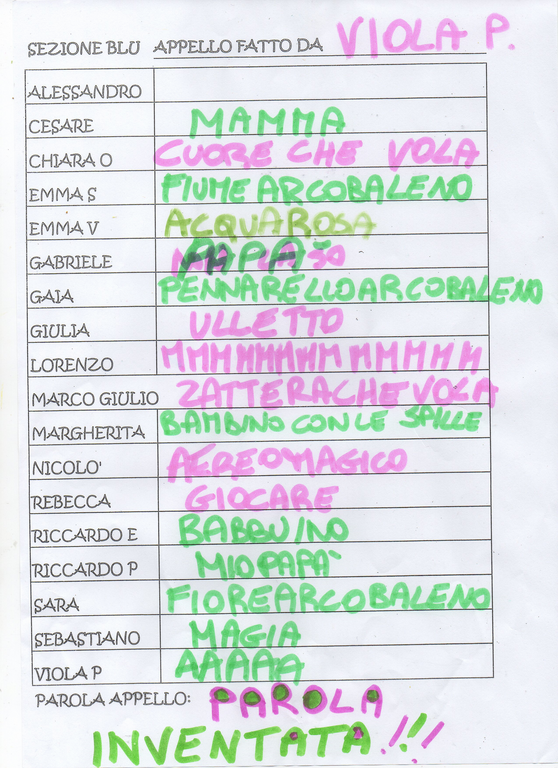 SEZIONE BLU APPELLO FATTO DA VIOLA P.
ALESSANDRO
CESARE MAMMA
CHIARA O CUORE CHE VOLA
EMMA S FIUME ARCOBALENO
EMMA V ACQUA ROSA
GABRIELE PAPÀ
GAIA PENNARELLO ARCOBALENO
GIULIA ULLETTO
LORENZO MMMMMMMMMMMMM
MARCO GIULIO ZATTERA CHE VOLA
MARGHERITA BAMBINO CON LE SPILLE
NICOLO' AEREO MAGICO
REBECCA GIOCARE
RICCARDO E BABBUINO
RICCARDO P MIO PAPA'
SARA FIORE ARCOBALENO
SEBASTIANO MAGIA
VIOLA P AAAAA
PAROLA APPELLO: PAROLA
INVENTATA!!!